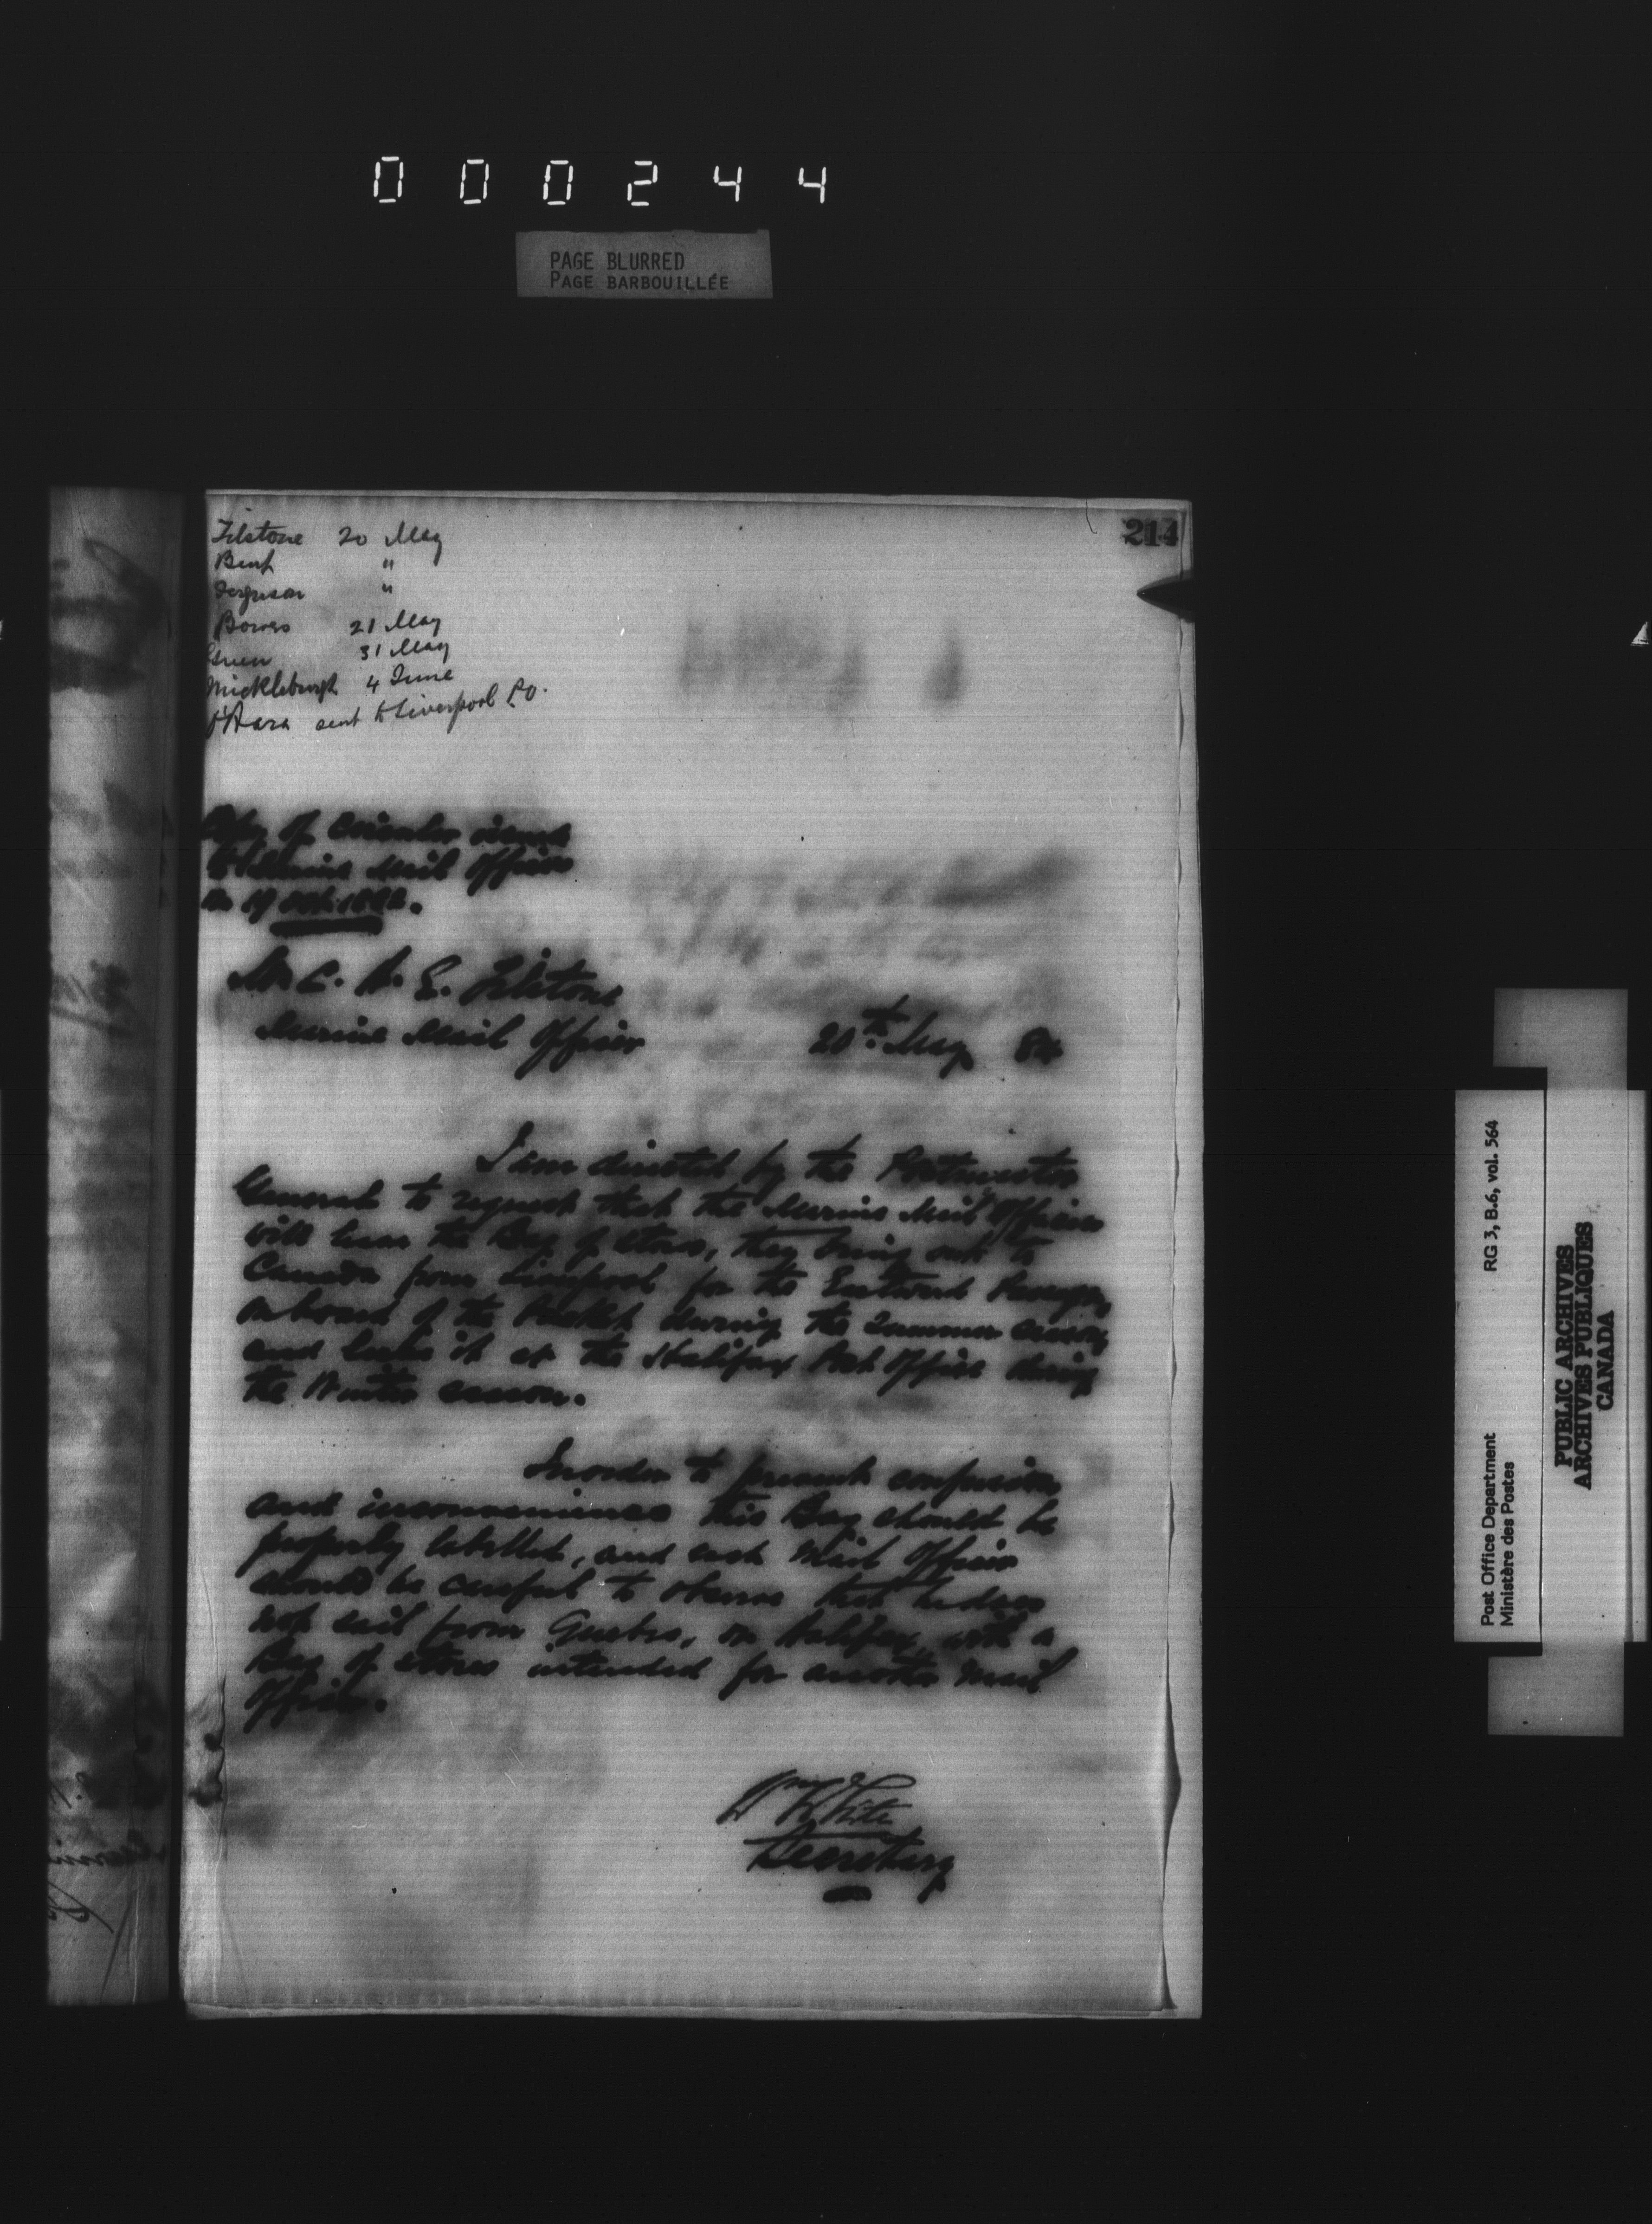 000244
PAGE BLURRED
PAGE BARBOUILLÉE
214
Tilstone 20 May
Bent "
Ferguson "
Bowes 21 May
Green 31 May
Mickleburgh 4 June
O'Hara sent to Liverpool P.O.
Copy of Circular issued
to Marine Mail Officers
on 17
Mr C. A. E. Tilstone
Marine Mail Officer 20th May 84
I am directed by the Postmaster
General to request that the Marine Mail Officers
will leave the Bag of stores, they bring out to
Canada from Liverpool for the Eastward Passage,
on board of the Packet during the Summer season,
and leave it at the Halifax Post Office during
the Winter season.
In order to prevent confusion
and inconvenience this Bag should be
properly labelled, and each Mail Officer
should be careful to observe that he does
not sail from Quebec, or Halifax, with a
Bag of stores intended for another Mail
Officer.
Wm White
Secretary
Post Office Department RG 3, B.6, vol. 564
Ministère des Postes
PUBLIC ARCHIVES
ARCHIVES PUBLIQUES
CANADA